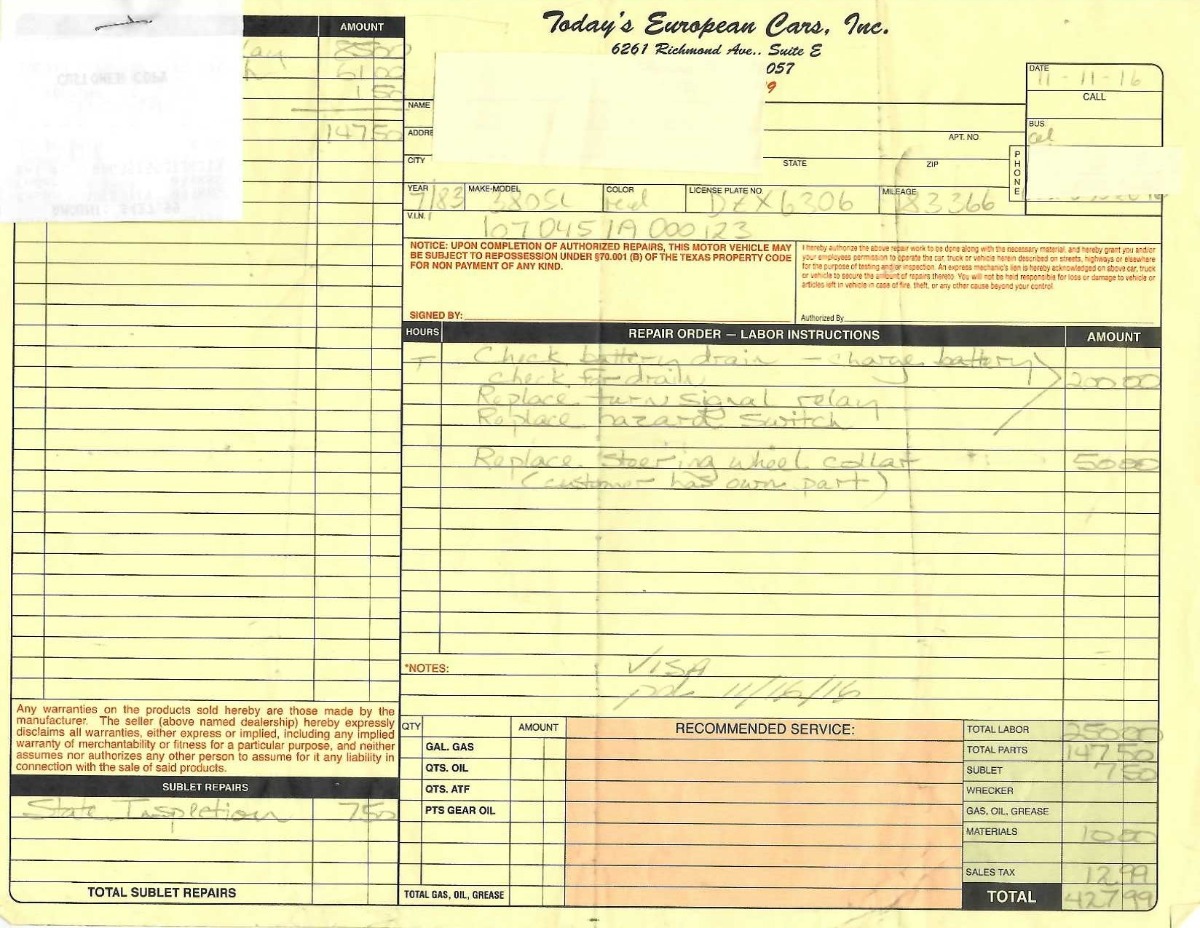 Today's European Cars, Inc.
6261 Richmond Ave.. Suite E
057
9
AMOUNT
lay 85 00
h 61 00
1 50
147 50
DATE
11-11-16
CALL
BUS.
cel
PHONE
NAME
ADDRE
APT. NO
CITY
STATE
ZIP
YEAR MAKE-MODEL COLOR LICENSE PLATE NO. MILEAGE
7/83 380SL red DZX6306 183366
V.I.N.
1070451A000123
NOTICE: UPON COMPLETION OF AUTHORIZED REPAIRS, THIS MOTOR VEHICLE MAY
BE SUBJECT TO REPOSSESSION UNDER §70.001 (B) OF THE TEXAS PROPERTY CODE
FOR NON PAYMENT OF ANY KIND.
SIGNED BY:
I hereby authorize the above repair work to be done along with the necessary material, and hereby grant you and/or
your employees permission to operate the car, truck or vehicle herein described on streets, highways or elsewhere
for the purpose of testing and/or inspection. An express mechanic's lien is hereby acknowledged on above car, truck
or vehicle to secure the amount of repairs thereto. You will not be held responsible for loss or damage to vehicle or
articles left in vehicle in case of fire, theft, or any other cause beyond your control.
Authorized By
HOURS REPAIR ORDER — LABOR INSTRUCTIONS AMOUNT
Check battery drain - charge battery
check for drain 200 00
Replace turn signal relay
Replace hazard switch
Replace steering wheel collar 50 00
(customer has own part)
*NOTES: VISA
pd 11/16/16
Any warranties on the products sold hereby are those made by the
manufacturer. The seller (above named dealership) hereby expressly
disclaims all warranties, either express or implied, including any implied
warranty of merchantability or fitness for a particular purpose, and neither
assumes nor authorizes any other person to assume for it any liability in
connection with the sale of said products.
SUBLET REPAIRS
State Inspection 7 50
TOTAL SUBLET REPAIRS
QTY AMOUNT
GAL. GAS
QTS. OIL
QTS. ATF
PTS GEAR OIL
TOTAL GAS, OIL, GREASE
RECOMMENDED SERVICE:
TOTAL LABOR 250 00
TOTAL PARTS 147 50
SUBLET 7 50
WRECKER
GAS, OIL, GREASE
MATERIALS 10 00
SALES TAX 12 99
TOTAL 427 99